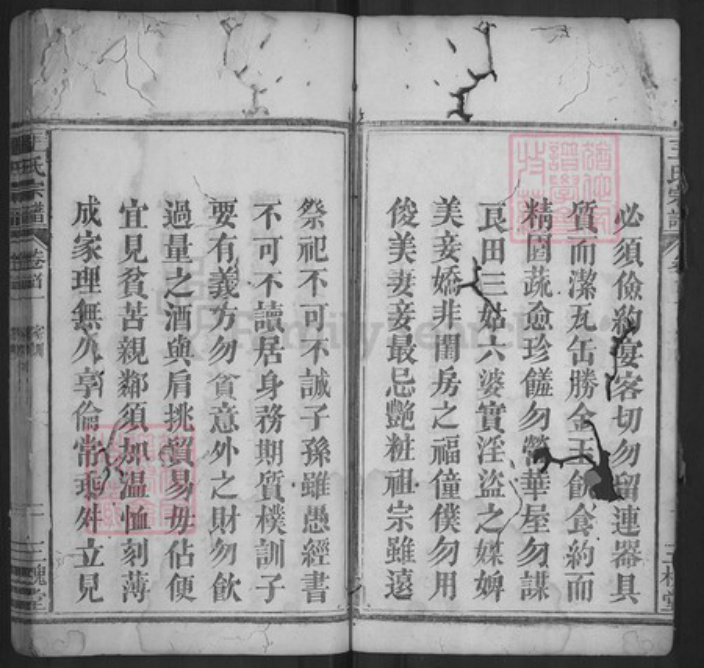 王氏宗譜
必須儉約宴客切勿留連器具
質而潔瓦缶勝金玉飲食約而
精園蔬愈珍饈勿營華屋勿謀
良田三姑六婆實淫盜之媒婢
美妾嬌非閨房之福僮僕勿用
俊美妻妾最忌艷粧祖宗雖遠
祭祀不可不誠子孫雖愚經書
不可不讀居身務期質樸訓子
要有義方勿貪意外之財勿飲
過量之酒與肩挑貿易毋佔便
宜見貧苦親鄰須加温恤刻薄
成家理無久享倫常乖舛立見
氏宗譜
卷首
家訓
三槐堂
FamilySearch